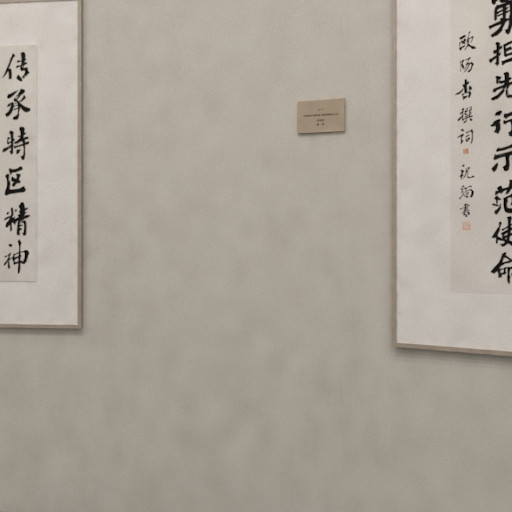 传承特区精神
勇担先行示范使命
欧阳杏撰词
祝韬书